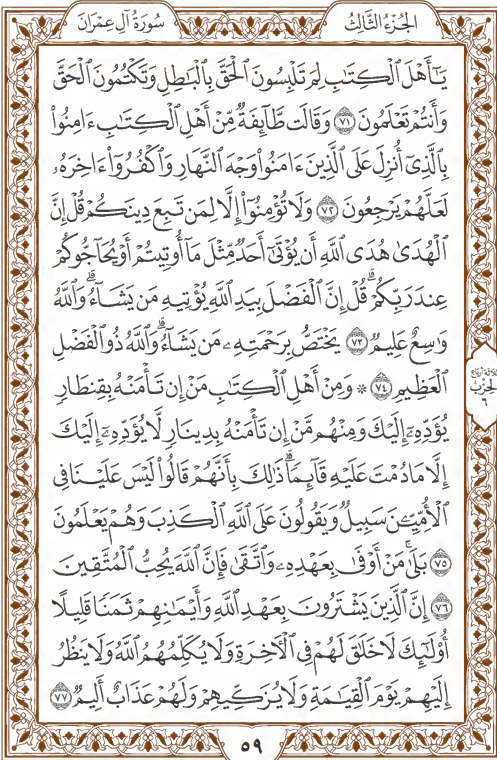 الجزء الثالث
سورة آل عمران
يَٰٓأَهۡلَ ٱلۡكِتَٰبِ لِمَ تَلۡبِسُونَ ٱلۡحَقَّ بِٱلۡبَٰطِلِ وَتَكۡتُمُونَ ٱلۡحَقَّ
وَأَنتُمۡ تَعۡلَمُونَ ٧١ وَقَالَت طَّآئِفَةٞ مِّنۡ أَهۡلِ ٱلۡكِتَٰبِ ءَامِنُواْ
بِٱلَّذِيٓ أُنزِلَ عَلَى ٱلَّذِينَ ءَامَنُواْ وَجۡهَ ٱلنَّهَارِ وَٱكۡفُرُوٓاْ ءَاخِرَهُۥ
لَعَلَّهُمۡ يَرۡجِعُونَ ٧٢ وَلَا تُؤۡمِنُوٓاْ إِلَّا لِمَن تَبِعَ دِينَكُمۡ قُلۡ إِنَّ
ٱلۡهُدَىٰ هُدَى ٱللَّهِ أَن يُؤۡتَىٰٓ أَحَدٞ مِّثۡلَ مَآ أُوتِيتُمۡ أَوۡ يُحَآجُّوكُمۡ
عِندَ رَبِّكُمۡۗ قُلۡ إِنَّ ٱلۡفَضۡلَ بِيَدِ ٱللَّهِ يُؤۡتِيهِ مَن يَشَآءُۗ وَٱللَّهُ
وَٰسِعٌ عَلِيمٞ ٧٣ يَخۡتَصُّ بِرَحۡمَتِهِۦ مَن يَشَآءُۗ وَٱللَّهُ ذُو ٱلۡفَضۡلِ
ٱلۡعَظِيمِ ٧٤ ۞ وَمِنۡ أَهۡلِ ٱلۡكِتَٰبِ مَنۡ إِن تَأۡمَنۡهُ بِقِنطَارٖ
ثلاثة أرباع
الحزب
٦
يُؤَدِّهِۦٓ إِلَيۡكَ وَمِنۡهُم مَّنۡ إِن تَأۡمَنۡهُ بِدِينَارٖ لَّا يُؤَدِّهِۦٓ إِلَيۡكَ
إِلَّا مَا دُمۡتَ عَلَيۡهِ قَآئِمٗاۗ ذَٰلِكَ بِأَنَّهُمۡ قَالُواْ لَيۡسَ عَلَيۡنَا فِي
ٱلۡأُمِّيِّـۧنَ سَبِيلٞ وَيَقُولُونَ عَلَى ٱللَّهِ ٱلۡكَذِبَ وَهُمۡ يَعۡلَمُونَ
٧٥ بَلَىٰۚ مَنۡ أَوۡفَىٰ بِعَهۡدِهِۦ وَٱتَّقَىٰ فَإِنَّ ٱللَّهَ يُحِبُّ ٱلۡمُتَّقِينَ
٧٦ إِنَّ ٱلَّذِينَ يَشۡتَرُونَ بِعَهۡدِ ٱللَّهِ وَأَيۡمَٰنِهِمۡ ثَمَنٗا قَلِيلًا
أُوْلَٰٓئِكَ لَا خَلَٰقَ لَهُمۡ فِي ٱلۡأٓخِرَةِ وَلَا يُكَلِّمُهُمُ ٱللَّهُ وَلَا يَنظُرُ
إِلَيۡهِمۡ يَوۡمَ ٱلۡقِيَٰمَةِ وَلَا يُزَكِّيهِمۡ وَلَهُمۡ عَذَابٌ أَلِيمٞ ٧٧
٥٩